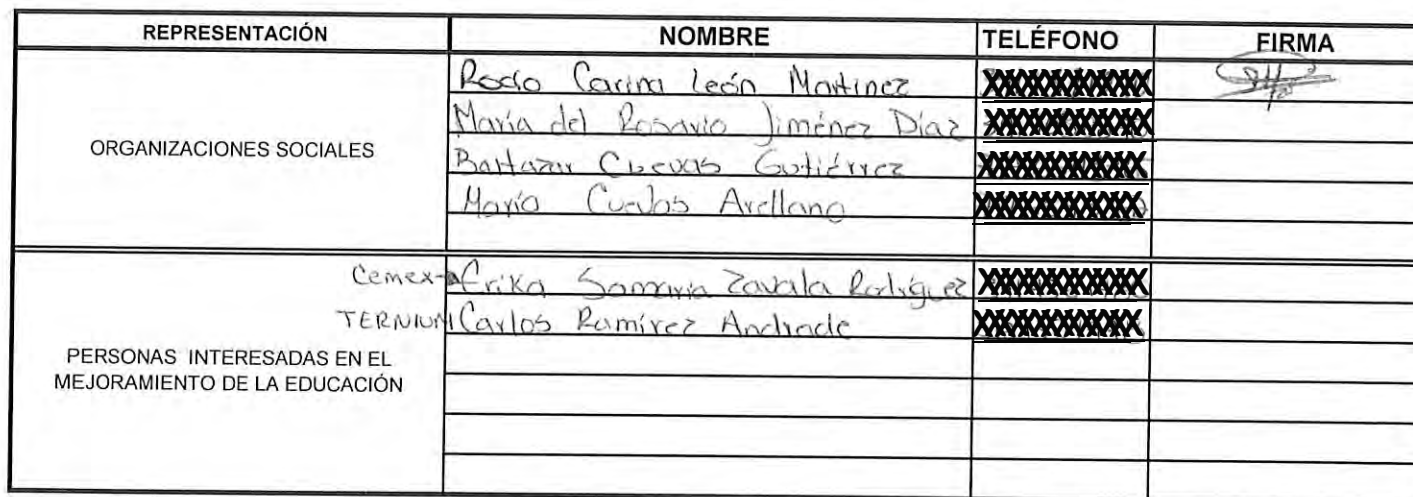 REPRESENTACIÓN NOMBRE TELÉFONO FIRMA
ORGANIZACIONES SOCIALES
Rocío Carina León Martinez XXXXXXXXXXXX
María del Rosario Jiménez Díaz XXXXXXXXXXXX
Baltazar Cuevas Gutiérrez XXXXXXXXXXXX
Mario Cuevas Arellano XXXXXXXXXXXX
PERSONAS INTERESADAS EN EL
MEJORAMIENTO DE LA EDUCACIÓN
Cemex Erika Zavala Rodríguez XXXXXXXXXXXX
TERNIUM Carlos Ramírez Andrade XXXXXXXXXXXX